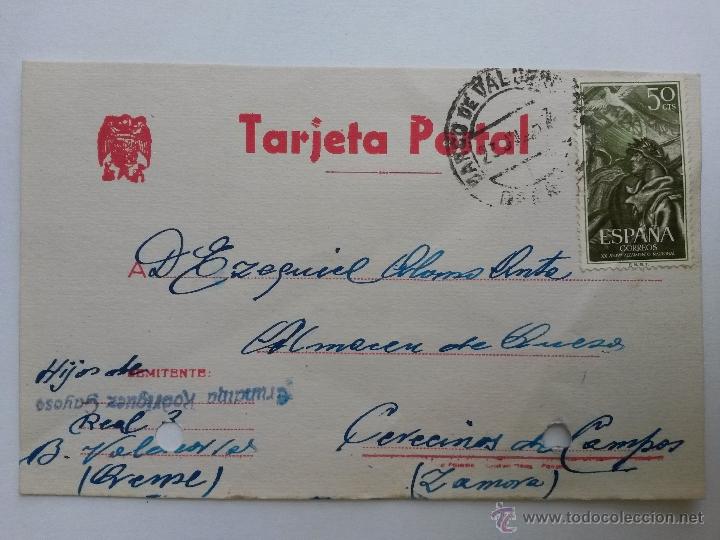 Tarjeta Postal
BARCO DE VALDEO
50
CTS
ESPAÑA
CORREOS
XX ANIV. ALZAMIENTO NACIONAL
F.N.M.T.
A D Ezequiel Alonso Ante
Almacen de Queso
Hijos de
REMITENTE:
Rodriguez Gayoso
Real 2
B. Valdeorras
(Orense)
Cerecinos de Campos
(Zamora)
© todocoleccion
www.todocoleccion.net